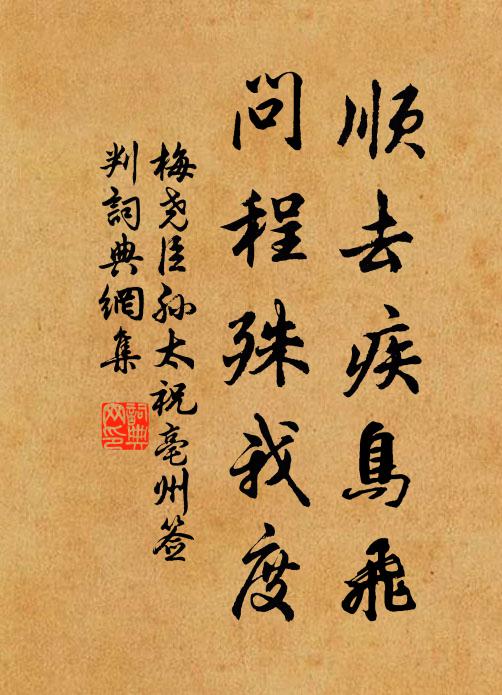 順去疾鳥飛
問程殊我度
梅堯臣孫太祝亳州簽
判詞典網集
詞典
网印